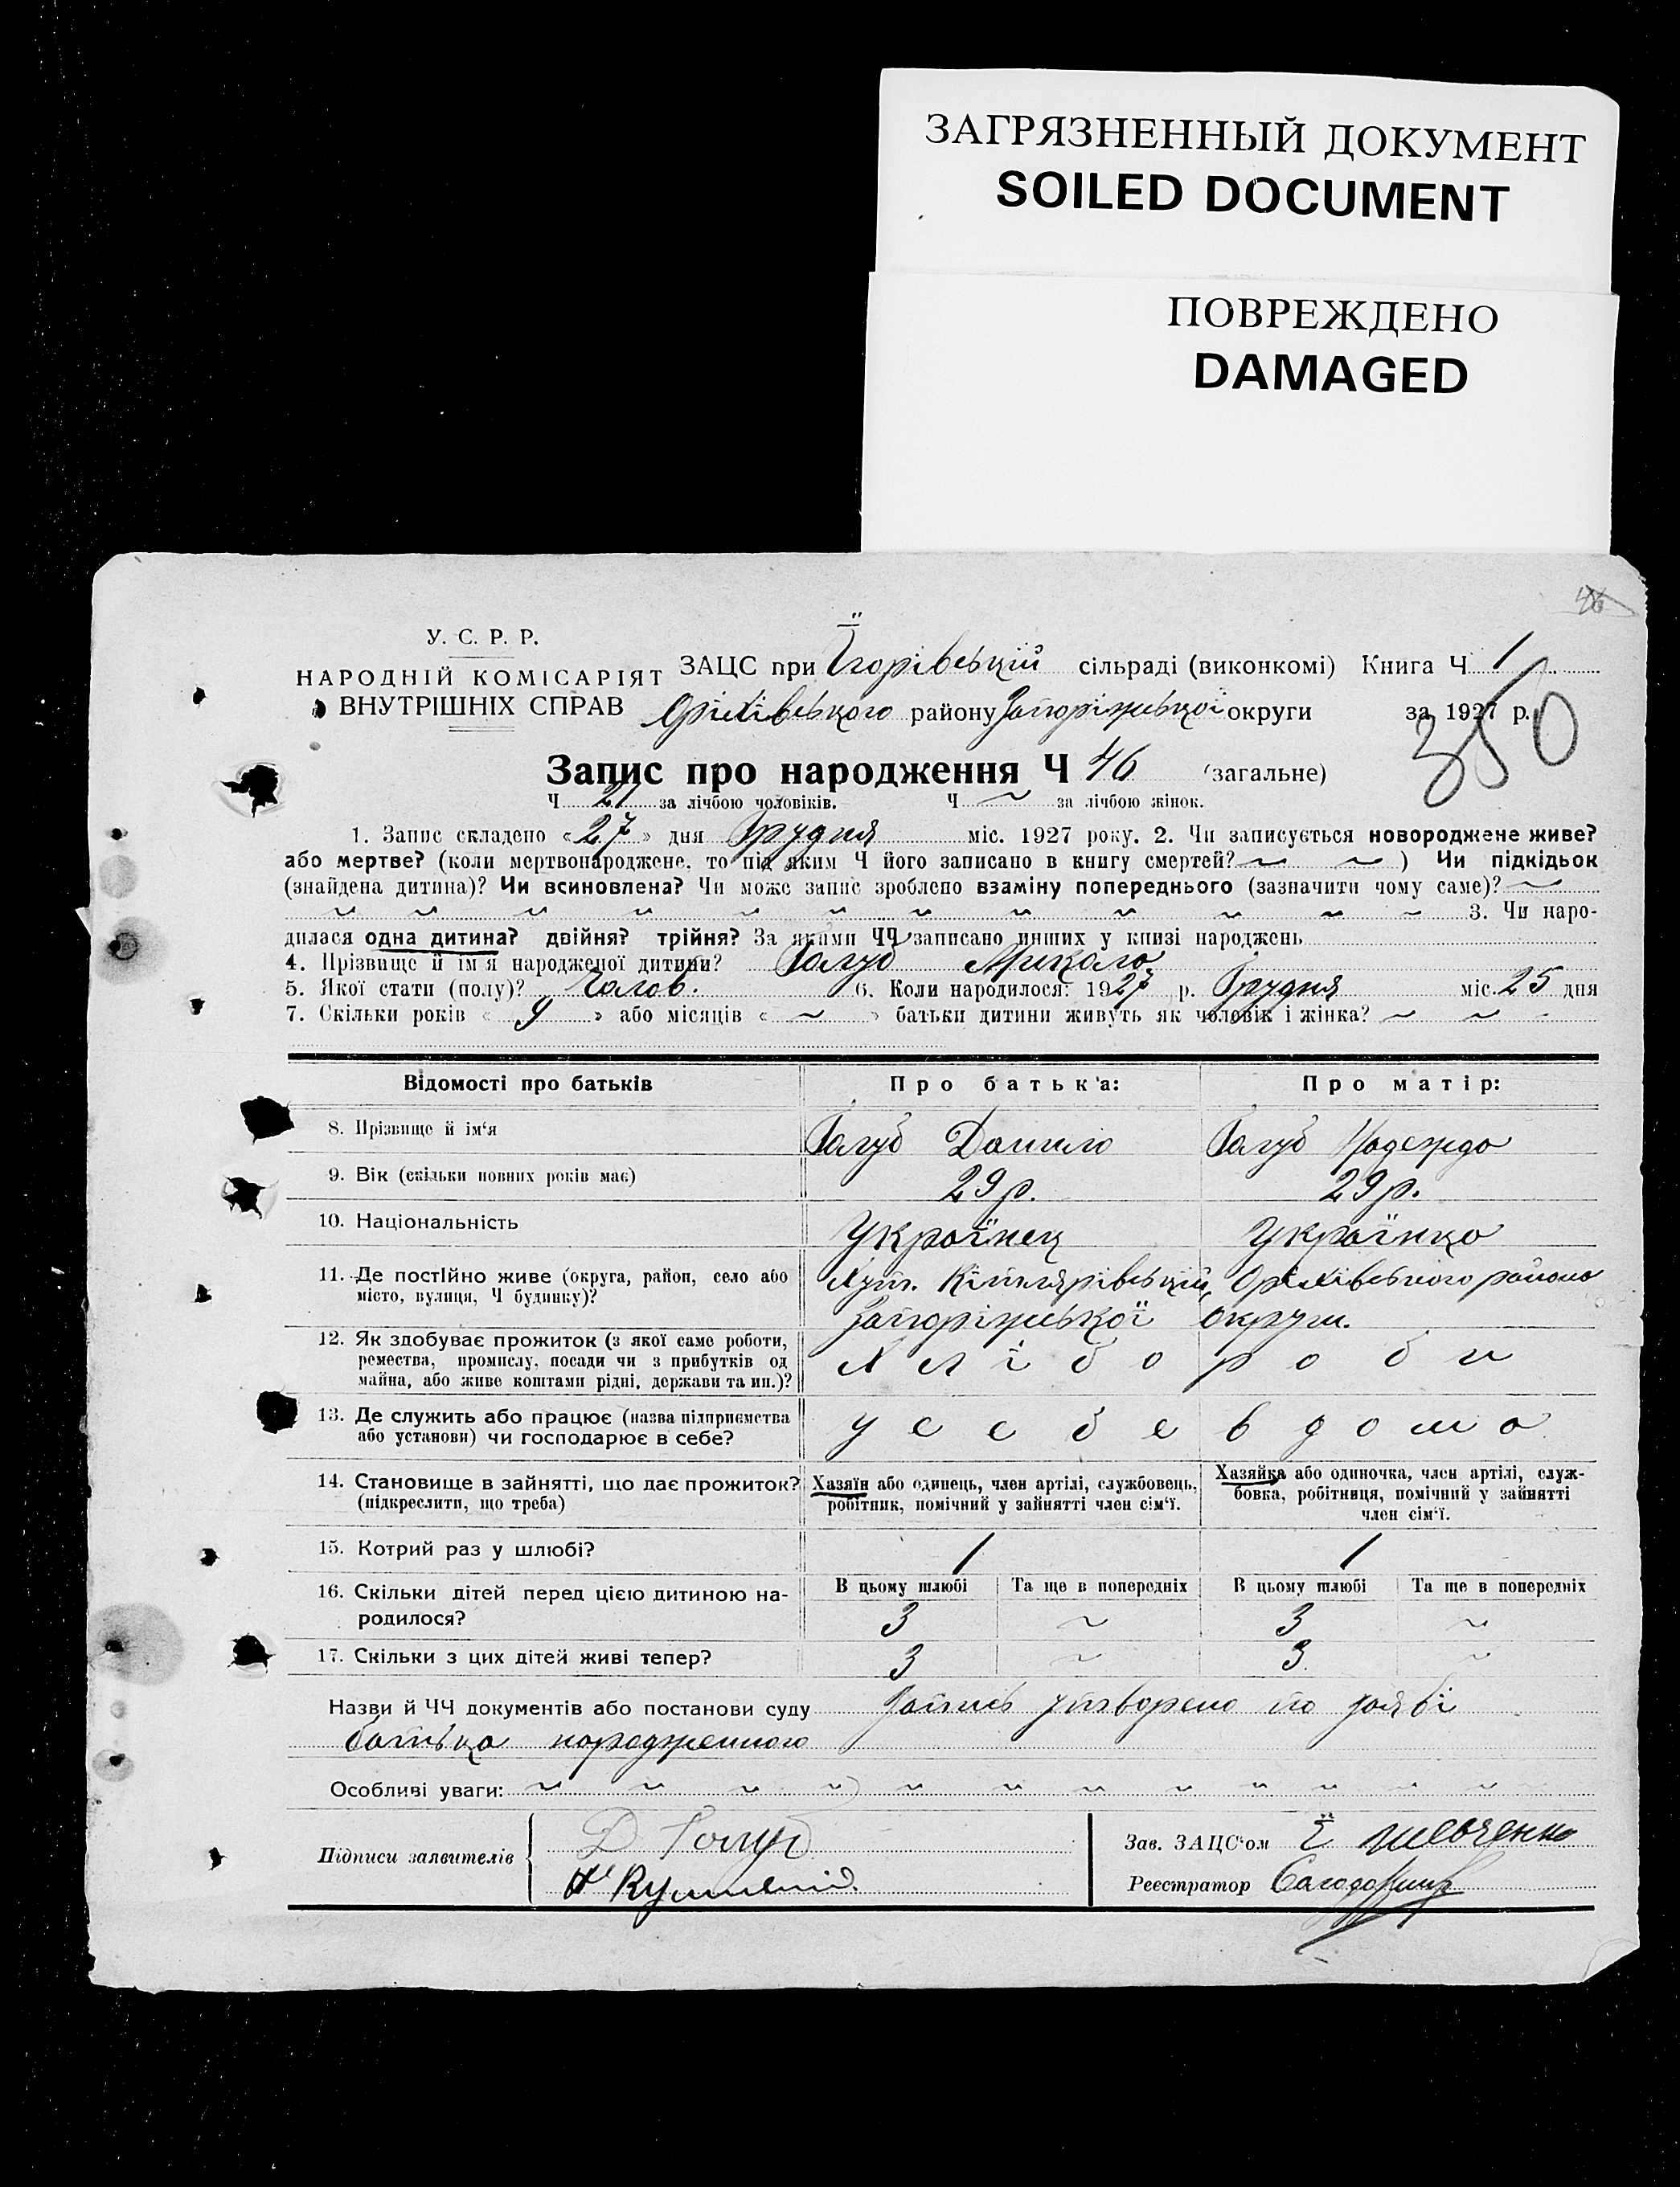 ЗАГРЯЗНЕННЫЙ ДОКУМЕНТ
SOILED DOCUMENT
ПОВРЕЖДЕНО
DAMAGED
46
У. С. Р. Р.
НАРОДНІЙ КОМІСАРІЯТ
ВНУТРІШНІХ СПРАВ
ЗАЦС при Їгорівській сільраді (виконкомі) Книга Ч 1
Оріхівського району Запоріжської округи за 1927 р.
350
Запис про народження Ч 46 (загальне)
Ч 21 за лічбою чоловіків. Ч ~ за лічбою жінок.
1. Запис складено «27» дня Грудня міс. 1927 року. 2. Чи записується новороджене живе?
або мертве? (коли мертвонароджене, то під яким Ч його записано в книгу смертей? ~ ~ ) Чи підкідьок
(знайдена дитина)? Чи всиновлена? Чи може запис зроблено взаміну попереднього (зазначити чому саме)? ~
~ ~ ~ ~ ~ ~ ~ ~ ~ ~ ~ ~ 3. Чи наро-
дилася одна дитина? двійня? трійня? За якими ЧЧ записано инших у книзі народжень
4. Прізвище й ім'я народженої дитини? Голуб Микола
5. Якої стати (полу)? Чолов. 6. Коли народилося: 1927 р. Грудня міс. 25 дня
7. Скільки років « 9 » або місяців « ~ » батьки дитини живуть як чоловік і жінка? ~ ~ -
Відомості про батьків Про батька: Про матір:
8. Прізвище й ім'я Голуб Данило Голуб Надежда
9. Вік (скільки повних років має) 29 р. 29 р.
10. Національність Українец Українка
11. Де постійно живе (округа, район, село або Хут. Оріхівського района
місто, вулиця, Ч будинку)? Запоріжської округи.
12. Як здобуває прожиток (з якої саме роботи,
ремества, промислу, посади чи з прибутків од Хлібороби
майна, або живе коштами рідні, держави та ин.)?
13. Де служить або працює (назва підприємства у себе вдома
або установи) чи господарює в себе?
14. Становище в зайнятті, що дає прожиток? Хазяїн або одинець, член артілі, службовець, Хазяйка або одиночка, член артілі, служ-
(підкреслити, що треба) робітник, помічний у зайнятті член сім'ї. бовка, робітниця, помічний у зайнятті
член сім'ї.
15. Котрий раз у шлюбі? 1 1
16. Скільки дітей перед цією дитиною на- В цьому шлюбі Та ще в попередніх В цьому шлюбі Та ще в попередніх
родилося? 3 ~ 3 ~
17. Скільки з цих дітей живі тепер? 3 ~ 3 ~
Назви й ЧЧ документів або постанови суду Запись утворено по заяві
батька народженного
Особливі уваги: ~ ~ ~ ~ ~ ~ ~ ~ ~ ~ ~ ~
Підписи заявителів Д Голуб Зав. ЗАЦС'ом Ї Шевченко
Реєстратор